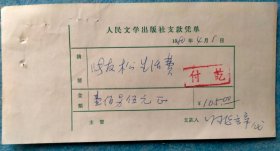 人民文学出版社支款凭单
1960年4月5日
摘要 生活费
付讫
金额 壹佰另伍元正 ¥105.00
主管 支款人